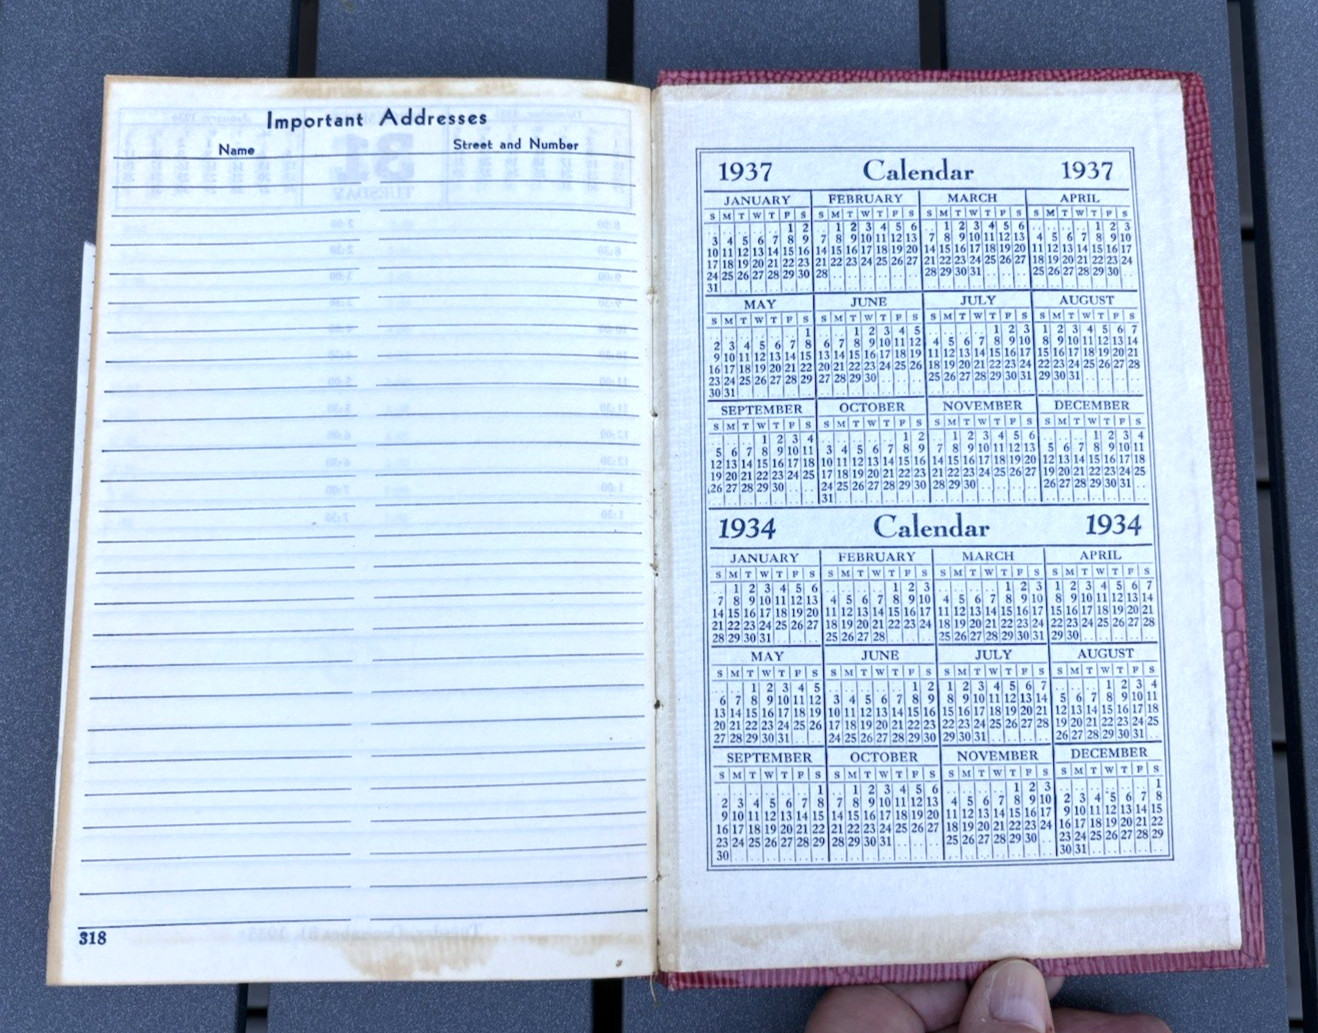 Important Addresses
Name
Street and Number
318
1937 Calendar 1937
JANUARY
S M T W T F S
1 2
3 4 5 6 7 8 9
10 11 12 13 14 15 16
17 18 19 20 21 22 23
24 25 26 27 28 29 30
31
FEBRUARY
S M T W T F S
1 2 3 4 5 6
7 8 9 10 11 12 13
14 15 16 17 18 19 20
21 22 23 24 25 26 27
28
MARCH
S M T W T F S
1 2 3 4 5 6
7 8 9 10 11 12 13
14 15 16 17 18 19 20
21 22 23 24 25 26 27
28 29 30 31
APRIL
S M T W T F S
1 2 3
4 5 6 7 8 9 10
11 12 13 14 15 16 17
18 19 20 21 22 23 24
25 26 27 28 29 30
MAY
S M T W T F S
1
2 3 4 5 6 7 8
9 10 11 12 13 14 15
16 17 18 19 20 21 22
23 24 25 26 27 28 29
30 31
JUNE
S M T W T F S
1 2 3 4 5
6 7 8 9 10 11 12
13 14 15 16 17 18 19
20 21 22 23 24 25 26
27 28 29 30
JULY
S M T W T F S
1 2 3
4 5 6 7 8 9 10
11 12 13 14 15 16 17
18 19 20 21 22 23 24
25 26 27 28 29 30 31
AUGUST
S M T W T F S
1 2 3 4 5 6 7
8 9 10 11 12 13 14
15 16 17 18 19 20 21
22 23 24 25 26 27 28
29 30 31
SEPTEMBER
S M T W T F S
1 2 3 4
5 6 7 8 9 10 11
12 13 14 15 16 17 18
19 20 21 22 23 24 25
26 27 28 29 30
OCTOBER
S M T W T F S
1 2
3 4 5 6 7 8 9
10 11 12 13 14 15 16
17 18 19 20 21 22 23
24 25 26 27 28 29 30
31
NOVEMBER
S M T W T F S
1 2 3 4 5 6
7 8 9 10 11 12 13
14 15 16 17 18 19 20
21 22 23 24 25 26 27
28 29 30
DECEMBER
S M T W T F S
1 2 3 4
5 6 7 8 9 10 11
12 13 14 15 16 17 18
19 20 21 22 23 24 25
26 27 28 29 30 31
1934 Calendar 1934
JANUARY
S M T W T F S
1 2 3 4 5 6
7 8 9 10 11 12 13
14 15 16 17 18 19 20
21 22 23 24 25 26 27
28 29 30 31
FEBRUARY
S M T W T F S
1 2 3
4 5 6 7 8 9 10
11 12 13 14 15 16 17
18 19 20 21 22 23 24
25 26 27 28
MARCH
S M T W T F S
1 2 3
4 5 6 7 8 9 10
11 12 13 14 15 16 17
18 19 20 21 22 23 24
25 26 27 28 29 30 31
APRIL
S M T W T F S
1 2 3 4 5 6 7
8 9 10 11 12 13 14
15 16 17 18 19 20 21
22 23 24 25 26 27 28
29 30
MAY
S M T W T F S
1 2 3 4 5
6 7 8 9 10 11 12
13 14 15 16 17 18 19
20 21 22 23 24 25 26
27 28 29 30 31
JUNE
S M T W T F S
1 2
3 4 5 6 7 8 9
10 11 12 13 14 15 16
17 18 19 20 21 22 23
24 25 26 27 28 29 30
JULY
S M T W T F S
1 2 3 4 5 6 7
8 9 10 11 12 13 14
15 16 17 18 19 20 21
22 23 24 25 26 27 28
29 30 31
AUGUST
S M T W T F S
1 2 3 4
5 6 7 8 9 10 11
12 13 14 15 16 17 18
19 20 21 22 23 24 25
26 27 28 29 30 31
SEPTEMBER
S M T W T F S
1
2 3 4 5 6 7 8
9 10 11 12 13 14 15
16 17 18 19 20 21 22
23 24 25 26 27 28 29
30
OCTOBER
S M T W T F S
1 2 3 4 5 6
7 8 9 10 11 12 13
14 15 16 17 18 19 20
21 22 23 24 25 26 27
28 29 30 31
NOVEMBER
S M T W T F S
1 2 3
4 5 6 7 8 9 10
11 12 13 14 15 16 17
18 19 20 21 22 23 24
25 26 27 28 29 30
DECEMBER
S M T W T F S
1
2 3 4 5 6 7 8
9 10 11 12 13 14 15
16 17 18 19 20 21 22
23 24 25 26 27 28 29
30 31